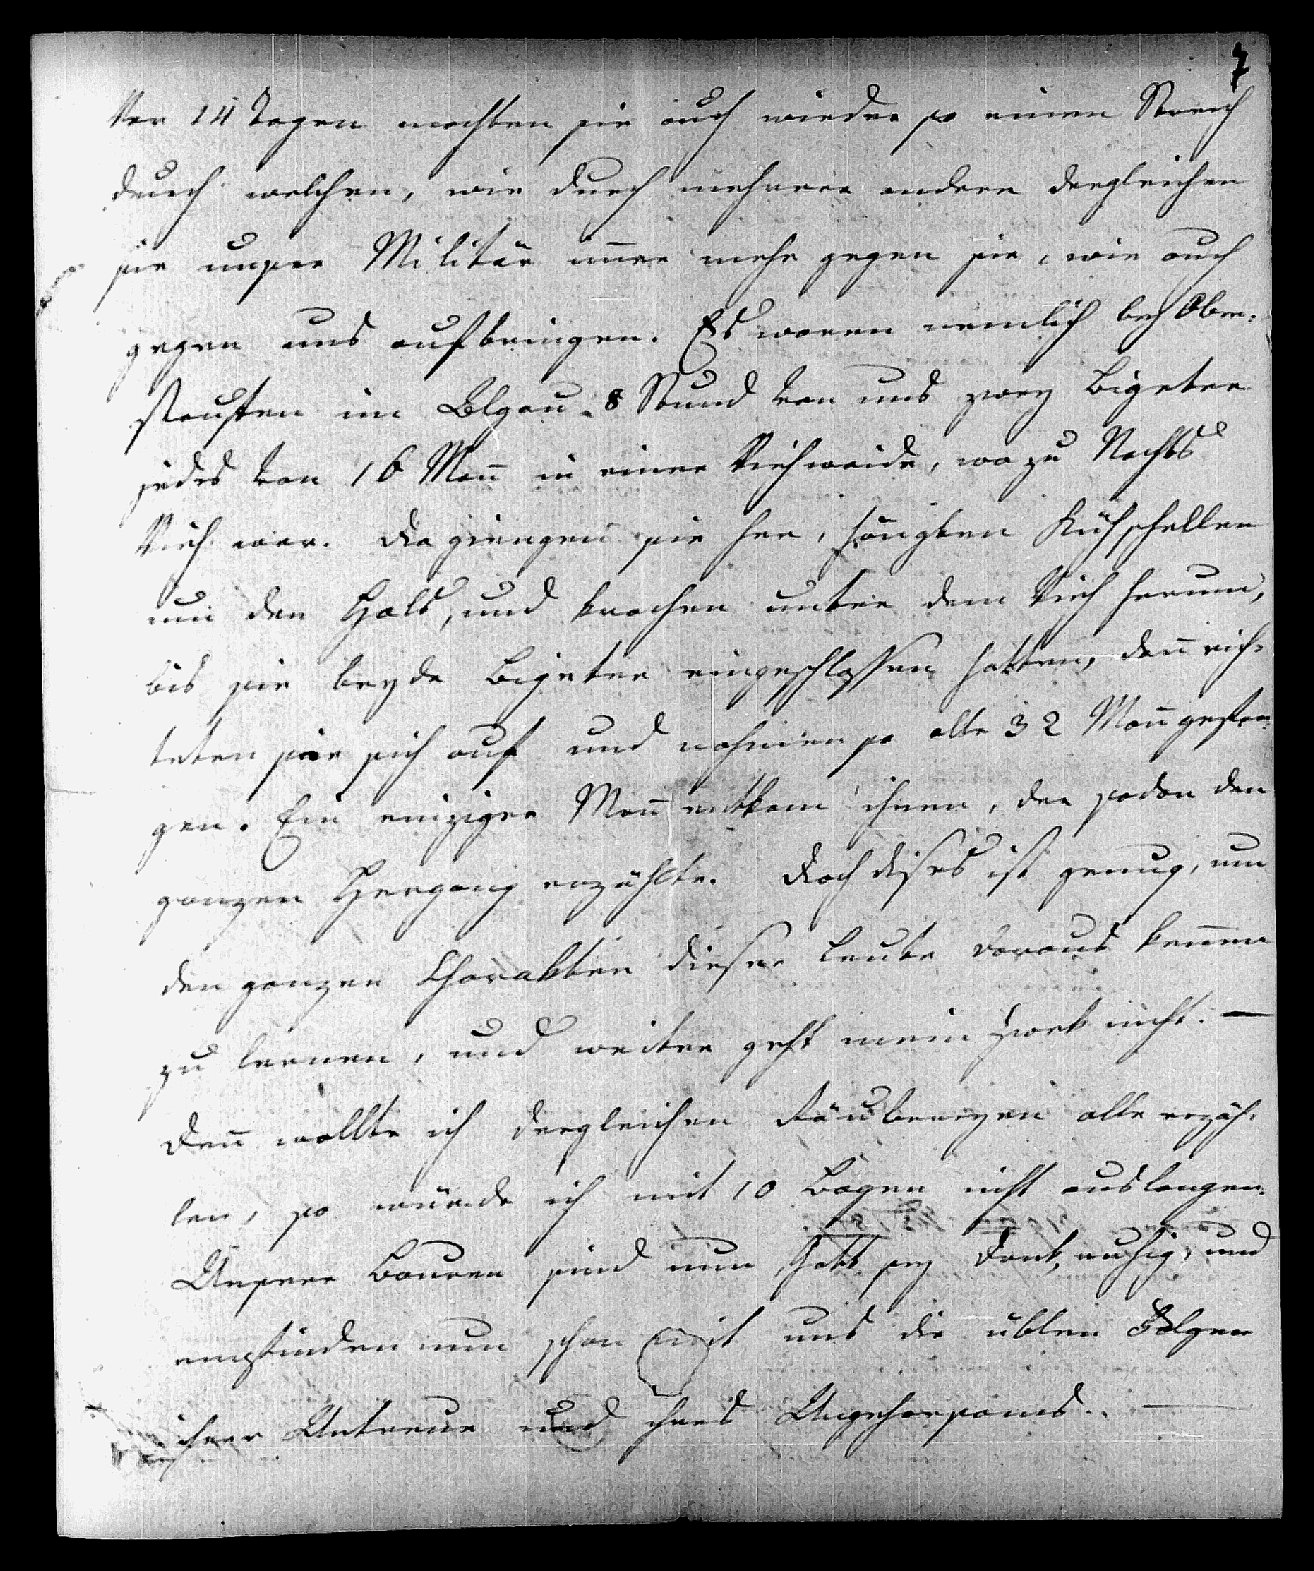 7
Vor 14 Tagen machten sie auch wieder so einen Streich
durch welchen, wie durch mehrere andere dergleichen
sie unser Militär im̄er mehr gegen sie, wie auch
gegen uns aufbringen. Es waren nemlich bey Ober-
staufen im Algau 8 Stund von uns zwey Biqeter
jedes von 16 Mañ in einer Viehwaide, wo zu Nachts
Vieh war. Da giengen sie her, hängten Kühschellen
um den Hals, und krochen unter dem Vieh herum,
bis sie beyde Biqeter eingeschlossen hatten, dañ rich-
teten sie sich auf und nahmen so alle 32 Mañ gefan-
gen. Ein einziger Mañ entkam ihnen, der sodan den
ganzen Hergang erzählte. Doch dises ist genug, um
den ganzen Charakter dieser Leute daraus kennen
zu lernen, und weiter geht mein Zwek nicht. —
Deñ wollte ich dergleichen Räubereyen alle erzäh-
len, so würde ich mit 10 Bögen nicht auslangen.
Unsere Bauren sind nun Gott sey Dank, ruhig, und
empfinden nun schon mit uns die üblen Folgen
ihrer Untreue und ihres Ungehorsams. —